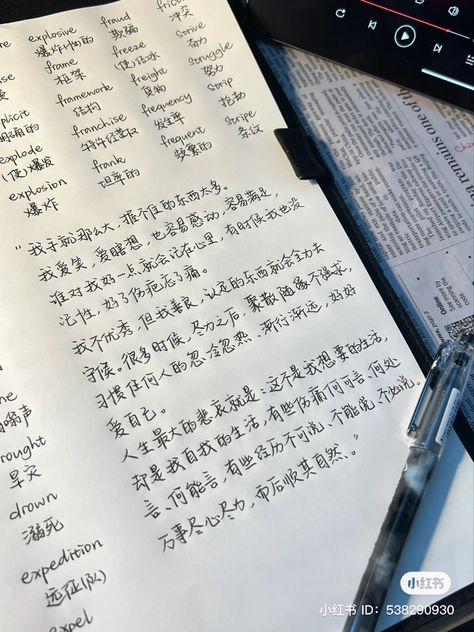 explosive
爆炸(性)的
frame
框架
framework
结构
franchise
特许经营权
frank
坦率的
fraud
欺骗
freeze
(使)结冰
freight
货物
frequency
发生率
frequent
频繁的
冲突
strive
奋力
struggle
努力
strip
stripe
条纹
plicit
explode
(使)爆发
explosion
爆炸
"我手就那么大，握不住的东西太多。
我爱笑，爱瞎想，也容易感动，容易满足，
谁对我好一点就会记在心里，有时候我也没
记性，好了伤疤忘了痛。
我不优秀，但我善良，认定的东西就会全力去
守候。很多时候，尽力之后，聚散随缘不强求，
习惯任何人的忽冷忽热、渐行渐远，好好
爱自己。
人生最大的悲哀就是：这不是我想要的生活，
却是我自找的生活，有些伤痛何可言、何处
言、何能言，有些经历不可说、不能说、不必说。
万事尽心尽力，而后顺其自然、。"
rought
旱灾
drown
溺死
expedition
远征(队)
expel
remains one of th
Online
小红书
小红书 ID: 538290930